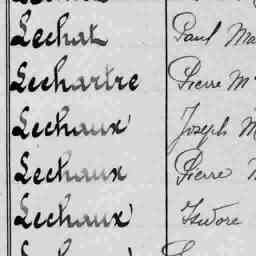 Lechat Paul Ma
Lechartre Pierre M
Lechaux Joseph M
Lechaux Pierre M
Lechaux Isidore